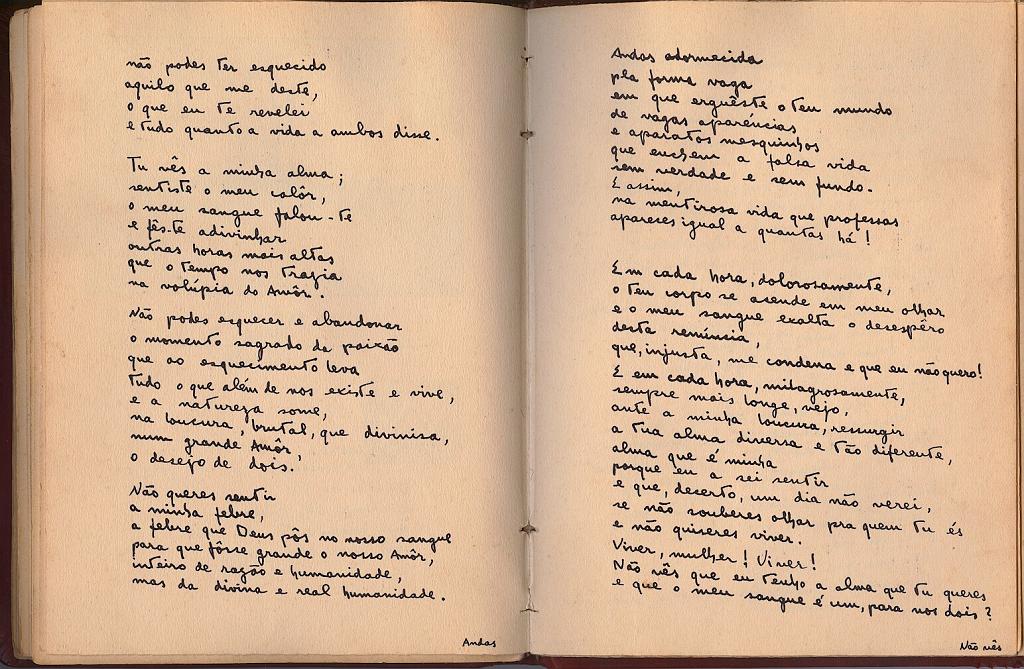 não podes ter esquecido
aquilo que me deste,
o que eu te revelei
e tudo quanto a vida a ambos disse.
Tu vês a minha alma;
sentiste o meu calôr,
o meu sangue falou-te
e fês-te adivinhar
outras horas mais altas
que o tempo nos trazia
na volúpia do Amôr.
Não podes esquecer e abandonar
o momento sagrado da paixão
que ao esquecimento leva
tudo o que além de nós existe e vive,
e a natureza some,
na loucura, brutal, que diviniza,
num grande Amôr,
o desejo de dois.
Não queres sentir
a minha febre,
a febre que Deus pôs no nosso sangue
para que fôsse grande o nosso Amôr,
inteiro de razão e humanidade,
mas da divina e real humanidade.
Andas
Andas adormecida
pla forma vaga
em que erguêste o teu mundo
de vagas aparências
e aparatos mesquinhos
que enchem a falsa vida
sem verdade e sem fundo.
E assim,
na mentirosa vida que professas
apareces igual a quantas há!
Em cada hora, dolorosamente,
o teu corpo se acende em meu olhar
e o meu sangue exalta o desespêro
desta renúncia,
que, injusta, me condena e que eu não quero!
E em cada hora, milagrosamente,
sempre mais longe, vejo,
ante a minha loucura, ressurgir
a tua alma diversa e tão diferente,
alma que é minha
porque eu a sei sentir
e que, decerto, um dia não verei,
se não souberes olhar pra quem tu és
e não quiseres viver.
Viver, mulher! Viver!
Não vês que eu tenho a alma que tu queres
e que o meu sangue é um, para nós dois?
Não vês